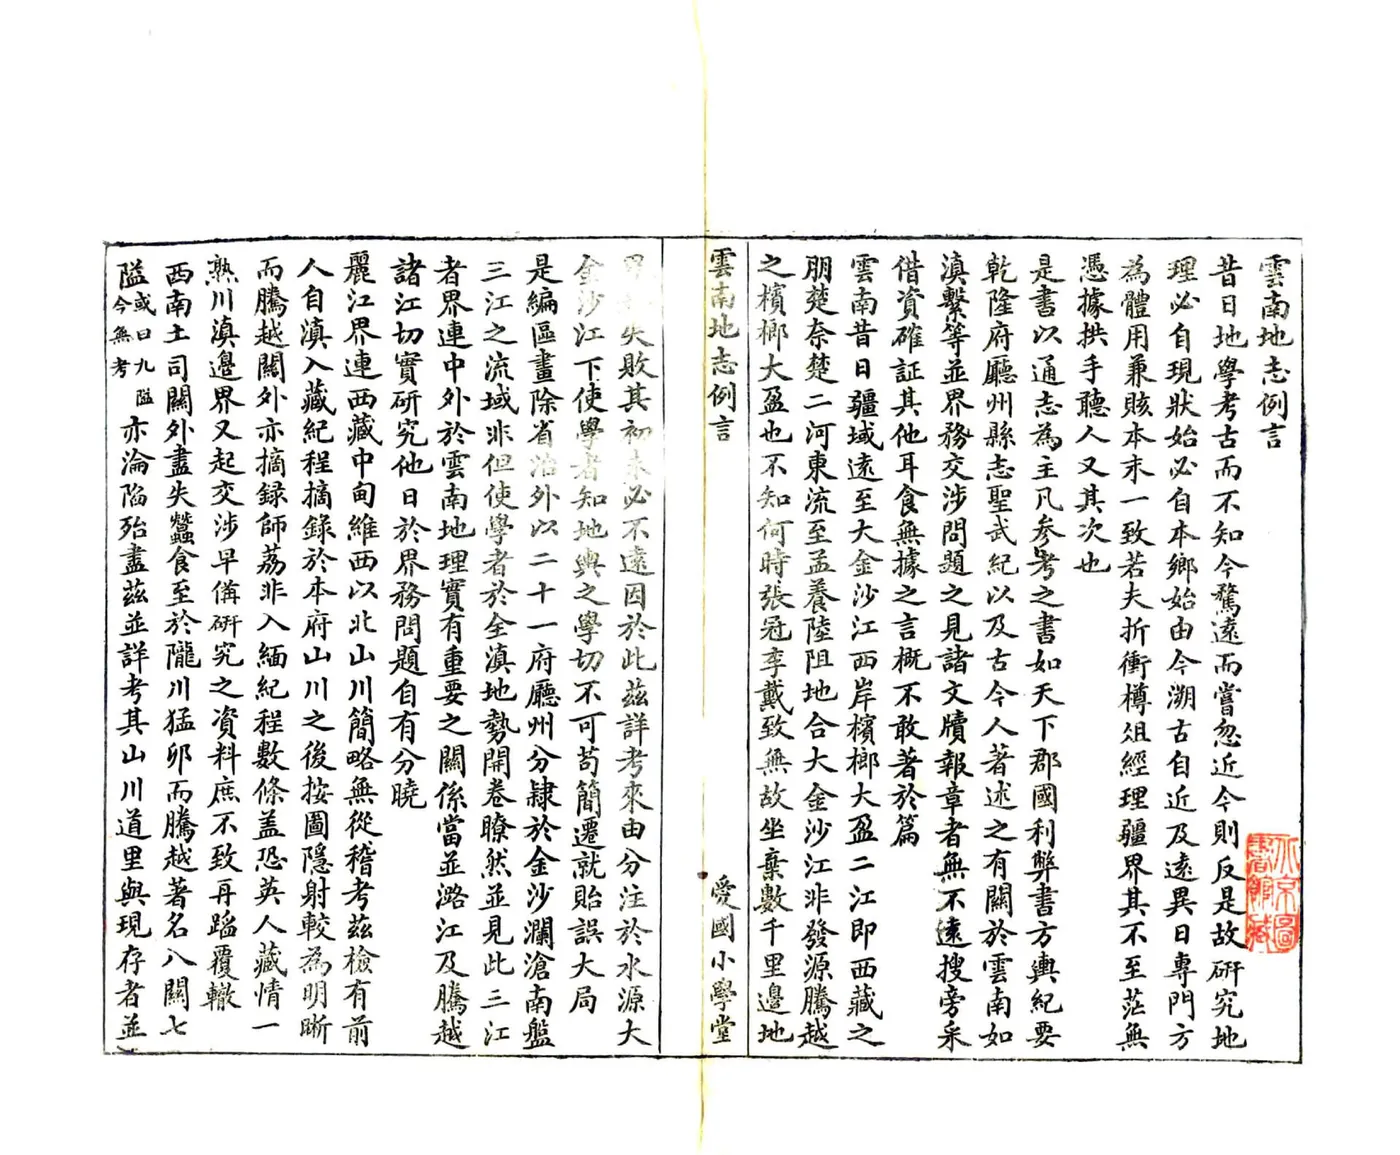 雲南地志例言
昔日地學考古而不知今騖遠而嘗忽近今則反是故研究地
理必自現狀始必自本鄉始由今溯古自近及遠異日專門方
為體用兼賅本末一致若夫折衝樽俎經理疆界其不至茫無
憑據拱手聽人又其次也
是書以通志為主凡參考之書如天下郡國利弊書方輿紀要
乾隆府廳州縣志聖武紀以及古今人著述之有關於雲南如
滇繫等並界務交涉問題之見諸文牘報章者無不遠搜旁采
借資確証其他耳食無據之言概不敢著於篇
雲南昔日疆域遠至大金沙江西岸檳榔大盈二江即西藏之
朋楚奈楚二河東流至孟養陸阻地合大金沙江非發源騰越
之檳榔大盈也不知何時張冠李戴致無故坐棄數千里邊地
雲南地志例言
愛國小學堂
失敗其初未必不遠因於此茲詳考來由分注於水源大
金沙江下使學者知地輿之學切不可苟簡遷就貽誤大局
是編區畫除省治外以二十一府廳州分隸於金沙瀾滄南盤
三江之流域非但使學者於全滇地勢開卷瞭然並見此三江
者界連中外於雲南地理實有重要之關係當並潞江及騰越
諸江切實研究他日於界務問題自有分曉
麗江界連西藏中甸維西以北山川簡略無從稽考茲檢有前
人自滇入藏紀程摘錄於本府山川之後按圖隱射較為明晰
而騰越關外亦摘録師荔非入緬紀程數條盖恐英人藏情一
熟川滇邊界又起交涉早備研究之資料庶不致再蹈覆轍
西南土司關外盡失蠶食至於隴川猛卯而騰越著名八關七
隘或曰九隘今無考亦淪陷殆盡茲並詳考其山川道里與現存者並